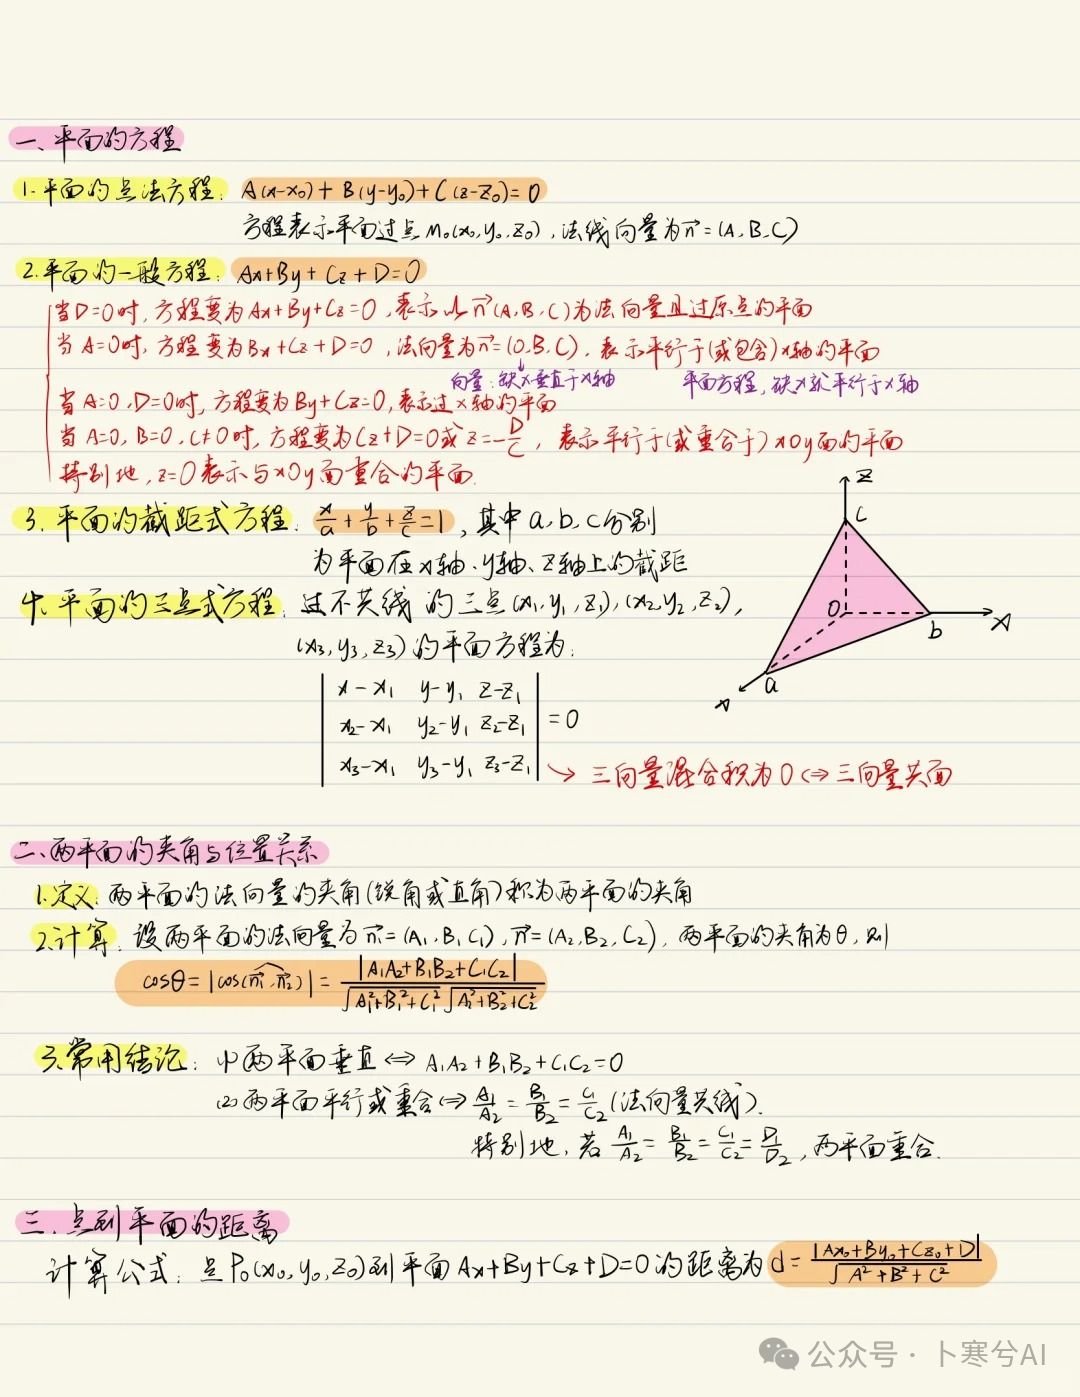 一、平面的方程
1.平面的点法方程: A(x-x₀)+B(y-y₀)+C(z-z₀)=0
方程表示平面过点M₀(x₀,y₀,z₀),法线向量为n⃗=(A,B,C)
2.平面的一般方程: Ax+By+Cz+D=0
当D=0时,方程变为Ax+By+Cz=0,表示以n⃗(A,B,C)为法向量且过原点的平面
当A=0时,方程变为Bx+Cz+D=0,法向量为n⃗=(0,B,C),表示平行于(或包含)x轴的平面
向量:缺x垂直于x轴 平面方程,缺x就平行于x轴
当A=0,D=0时,方程变为By+Cz=0,表示过x轴的平面
当A=0,B=0,C≠0时,方程变为Cz+D=0或z=-D/C,表示平行于(或重合于)xOy面的平面
特别地,z=0表示与xOy面重合的平面.
3.平面的截距式方程: x/a+y/b+z/c=1,其中a,b,c分别
为平面在x轴、y轴、z轴上的截距
z
c
O
b
x
a
x
4.平面的三点式方程:过不共线的三点(x₁,y₁,z₁),(x₂,y₂,z₂),
(x₃,y₃,z₃)的平面方程为:
| x-x₁ y-y₁ z-z₁ |
| x₂-x₁ y₂-y₁ z₂-z₁ | =0
| x₃-x₁ y₃-y₁ z₃-z₁ | → 三向量混合积为0⇔三向量共面
二、两平面的夹角与位置关系
1.定义:两平面的法向量的夹角(锐角或直角)称为两平面的夹角
2.计算:设两平面的法向量为n⃗=(A₁,B₁,C₁),n⃗=(A₂,B₂,C₂),两平面的夹角为θ,则
cosθ=|cos(n⃗₁,n⃗₂)|=|A₁A₂+B₁B₂+C₁C₂|/√A₁²+B₁²+C₁²√A₂²+B₂²+C₂²
3.常用结论:(1)两平面垂直⇔A₁A₂+B₁B₂+C₁C₂=0
(2)两平面平行或重合⇔A₁/A₂=B₁/B₂=C₁/C₂(法向量共线).
特别地,若A₁/A₂=B₁/B₂=C₁/C₂=D₁/D₂,两平面重合.
三.点到平面的距离
计算公式:点P₀(x₀,y₀,z₀)到平面Ax+By+Cz+D=0的距离为d=|Ax₀+By₀+Cz₀+D|/√A²+B²+C²
公众号·卜寒兮AI